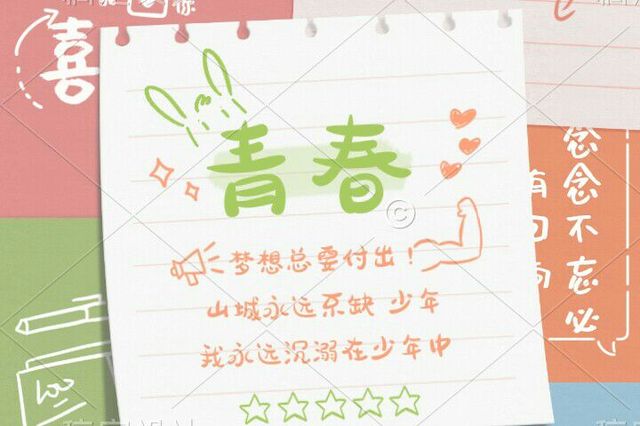 喜
你
青春
©
梦想总要付出！
山城永远不缺 少年
我永远沉溺在少年中
念念不忘必
有回响
100